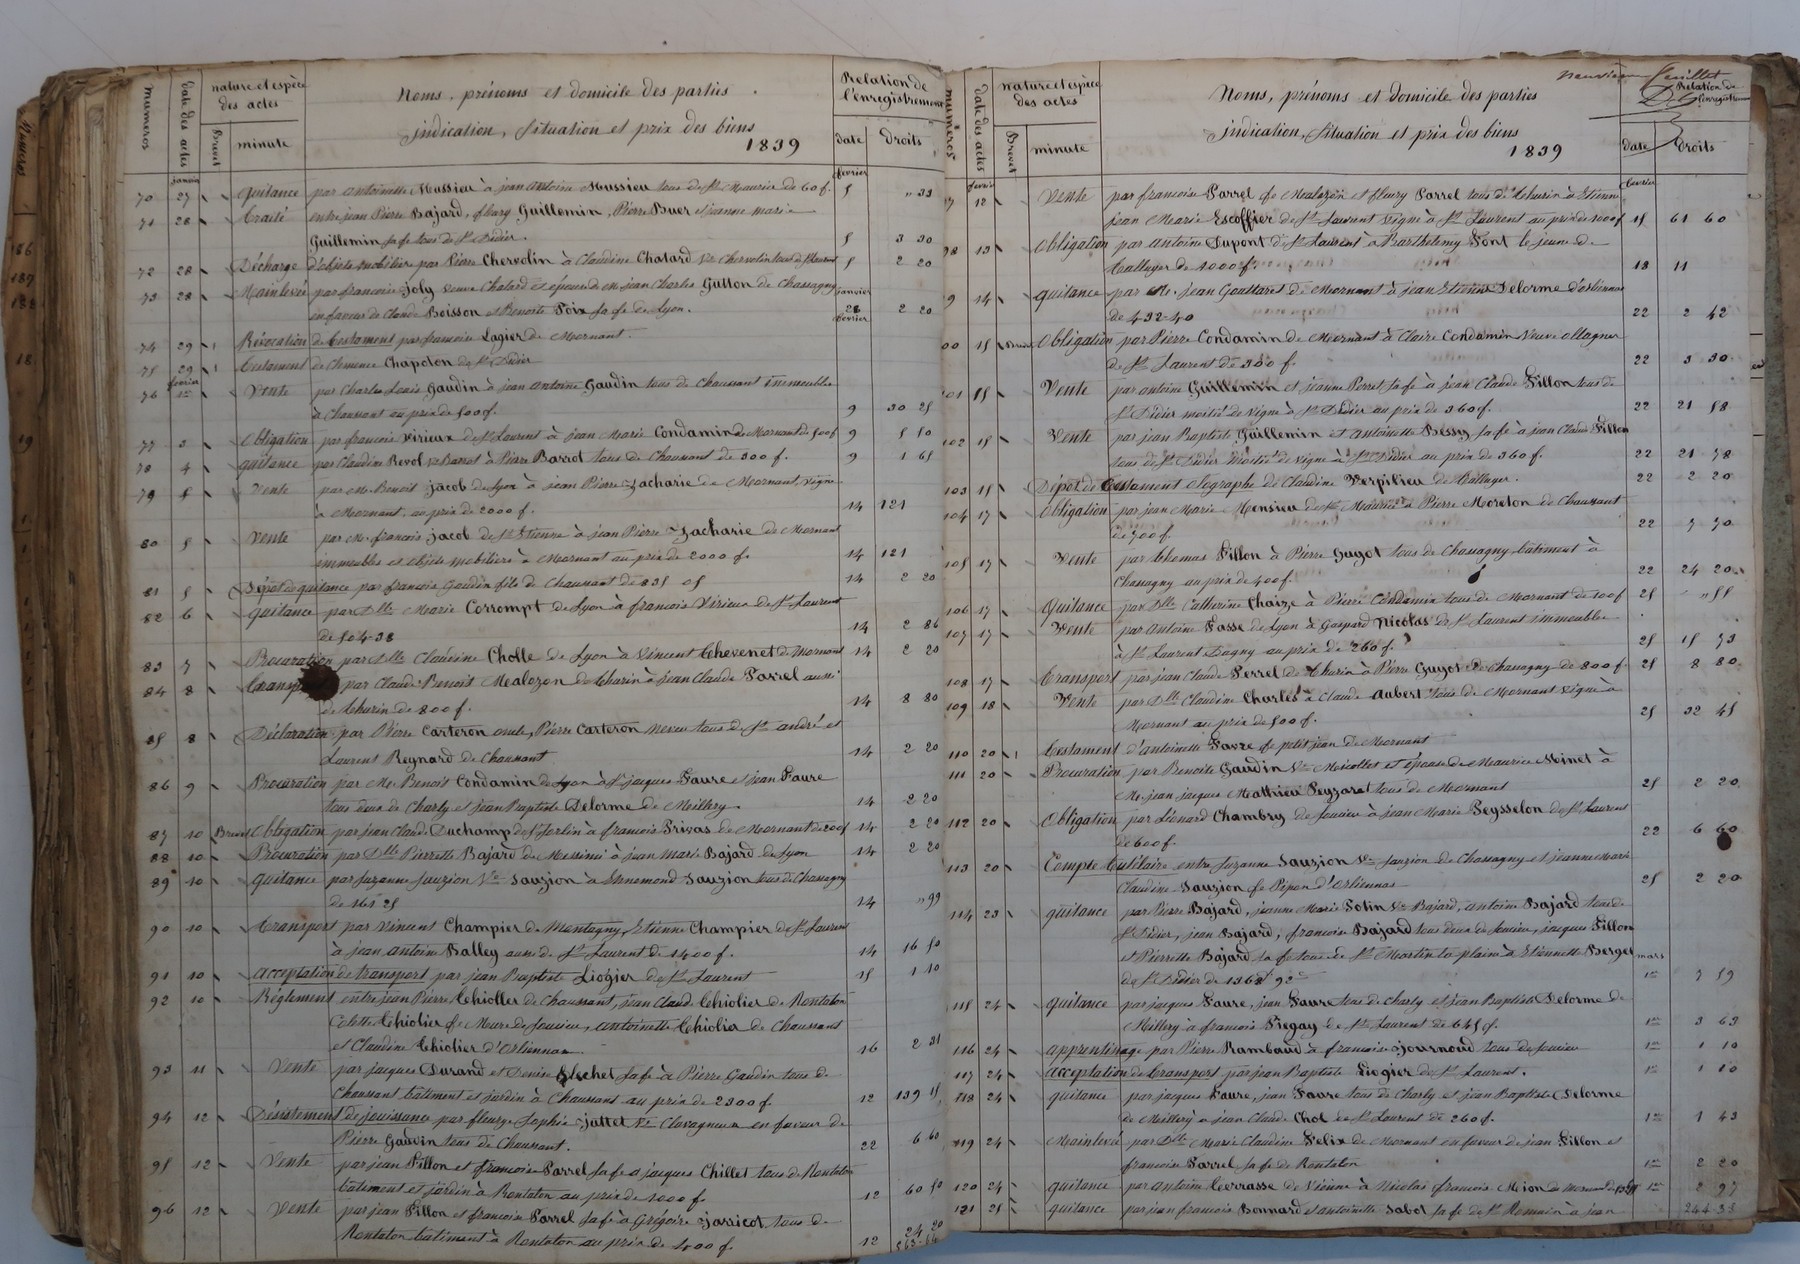 numeros
date des actes
nature et espèce des actes
Brevet
minute
Noms, prénoms et domicile des parties
indication, Situation et prix des biens
1839
Relation de l'enregistrement
date
droits
janvier
fevrier
70 27 quitance par antoinette Mussieu à jean antoine Mussieu tous de St Maurice de 60 f. 5 " 33
71 28 Traité entre jean Pierre Bajard, fleury Guillemin, Pierre Buer et jeanne marie
Guillemin sa fe tous de St Didier. 5 3 30
72 28 Décharge d'objets mobiliers par Pierre Chervolin à Claudine Chatard Ve Chervolin tous de St Laurent 5 2 20
73 28 Mainlevée par francoise Joly veuve Chatard et épouse de M jean Charles Gutton de Chassagny janvier
en faveur de Claude Boisson et Benoite Foix sa fe de Lyon. 28 2 20
fevrier
74 29 1 Révocation de testament par francoise Lagier de Mornant.
75 29 1 Testament de Clemence Chapolon de St Didier
fevrier
76 1er Vente par Charles Louis Gaudin à jean antoine Gaudin tous de Chaussant immeubles
à Chaussant au prix de 500 f. 9 30 25
77 3 Obligation par francois Virieux de St Laurent à jean Marie Condamin de Mornant de 500 f 9 5 50
78 4 quitance par Claudine Revol Ve Barrot à Pierre Barrot tous de Chaussant de 300 f. 9 1 65
79 5 Vente par M. Benoit Jacob de Lyon à jean Pierre Zacharie de Mornant, vigne
à Mornant au prix de 2000 f. 14 121
80 5 Vente par M. francois Jacob de St Etienne à jean Pierre Zacharie de Mornant
immeubles et objets mobiliers à Mornant au prix de 2000 f. 14 121
81 5 Dépot de quitance par francois Gaudin fils de Chaussant de 835 05 14 2 20
82 6 quitance par Dlle Marie Corrompt de Lyon à francois Virieux de St Laurent
de 504-38 14 2 86
83 7 Procuration par Dlle Claudine Cholle de Lyon à Vincent Thevenet de Mornant 14 2 20
84 8 Transp par Claude Benoit Mealozon de Thurin à jean Claude Parrel aussi
de Thurin de 800 f. 14 8 80
85 8 Déclaration par Pierre Carteron oncle, Pierre Carteron neveu tous de St andré et
Laurent Reynard de Chaussant 14 2 20
86 9 Procuration par M. Benoit Condamin de Lyon à Sr jacques Faure et jean Faure
tous deux de Charly et jean Baptiste Delorme de Millery. 14 2 20
87 10 Brevet Obligation par jean Claude Duchamp de St Sorlin à francois Privas de Mornant de 200 f 14 2 20
88 10 Procuration par Dlle Pierrette Bajard de Messimi à jean Marie Bajard de Lyon 14 2 20
89 10 quitance par Suzanne Sauzion Ve Sauzion à Ennemond Sauzion tous de Chassagny
de 161 25 14 " 99
90 10 Transport par Vincent Champier de Montagny, Etienne Champier de St Laurent
à jean antoine Balley aussi de St Laurent de 1400 f. 14 16 50
91 10 acceptation de transport par jean Baptiste Liogier de St Laurent 15 1 10
92 10 Réglement entre jean Pierre Thiollier de Chaussant, jean Claude Thiolier de Rontalon
Colette Thiolier fe Mure de Soucieu, antoinette Thiolier de Chaussant
et Claudine Thiolier d'Orliennas. 16 2 31
93 11 Vente par jacques Durand et Denise Blechet sa fe à Pierre Gaudin tous de
Chaussant batiment et jardin à Chaussant au prix de 2300 f. 12 139 15
94 12 Désistement de jouissance par fleurye Sophie Juttet Ve Clavagneux en faveur de
Pierre Gaudin tous de Chaussant. 22 6 60
95 12 Vente par jean Fillon et francoise Parrel sa fe à jacques Chillet tous de Rontalon
batiment et jardin à Rontalon au prix de 1000 f. 12 60 50
96 12 Vente par jean Fillon et francoise Parrel sa fe à Grégoire Jarricot, tous de
Rontalon batiment à Rontalon au prix de 400 f. 12 24 20
563-64
feuillet
numeros
date des actes
nature et espèce des actes
Brevet
minute
Noms, prénoms et domicile des parties
indication, Situation et prix des biens
1839
Relation de l'enregistrement
date
droits
fevrier
fevrier
97 12 Vente par francoise Parrel fe Mealozon et fleury Parrel tous de Thurin à Etienne
jean Marie Escoffier de St Laurent vigne à St Laurent au prix de 1000 f 15 61 60
98 13 Obligation par antoine Dupont de St Laurent à Barthelemy Font le jeune de
Talluyer de 1000 f. 18 11
9 14 quitance par M. jean Gouttaret de Mornant à jean Etienne Delorme d'orliennas
de 432-40 22 2 42
00 15 Brevet Obligation par Pierre Condamin de Mornant à Claire Condamin veuve ollagner
de St Laurent de 300 f. 22 3 30
101 15 Vente par antoine Guillemin et jeanne Perret sa fe à jean Claude Fillon tous de
St Didier moitié de vigne à St Didier au prix de 360 f. 22 21 58
102 15 Vente par jean Baptiste Guillemin et antoinette Bessy sa fe à jean Claude Fillon
tous de St Didier Moitié de vigne à St Didier au prix de 360 f. 22 21 78
103 15 Dépot de testament olographe de Claudine Verpilieu de Talluyer. 22 2 20
104 17 Obligation par jean Marie Monsieu de St Maurice à Pierre Moreton de Chaussant
de 700 f. 22 7 70
105 17 Vente par Thomas Fillon à Pierre Guyot tous de Chassagny batiment à
Chassagny au prix de 400 f. 22 24 20
106 17 quitance par Dlle Catherine Chaize à Pierre Condamin tous de Mornant de 100 f 25 " 55
107 17 Vente par antoine Fasse de Lyon à Gaspard Nicolas de St Laurent immeubles
à St Laurent Dagny au prix de 260 f. 25 15 73
108 17 Transport par jean Claude Perrel de Thurin à Pierre Guyot de Chassagny de 800 f. 25 8 80
109 18 Vente par Dlle Claudine Charles à Claude Aubert tous de Mornant vigne à
Mornant au prix de 500 f. 25 32 45
110 20 1 Testament d'antoinette Favre fe petit jean de Mornant
111 20 Procuration par Benoite Gaudin Ve Micollet et épouse de Maurice Minet à
M. jean jacques Mathieu Peyzaret tous de Mornant 25 2 20
112 20 Obligation par Léonard Chambry de Soucieu à jean Marie Peysselon de St Laurent
de 600 f. 22 6 60
113 20 Compte tutélaire entre Suzanne Sauzion Ve Sauzion de Chassagny et jeanne Marie
Claudine Sauzion fe Pipon d'Orliennas 25 2 20
114 23 quitance par Pierre Bajard, jeanne Marie Fotin Ve Bajard, antoine Bajard tous de
St Didier, jean Bajard, francoise Bajard tous deux de Soucieu, jacques Fillon
et Pierrette Bajard sa fe tous de St Martin la plaine à Etiennette Berger mars
de St Didier de 1368 f 92 c 1er 7 59
115 24 quitance par jacques Faure, jean Faure tous de charly et jean Baptiste Delorme de
Millery à francois Piegay de St Laurent de 645 f. 1er 3 63
116 24 apprentisage par Pierre Rambaud à francoise Journoud tous de Soucieu 1er 1 10
117 24 acceptation de transport par jean Baptiste Liogier de St Laurent. 1er 1 10
118 24 quitance par jacques Faure, jean Faure tous de Charly et jean Baptiste Delorme
de Millery à jean Claude Chol de St Laurent de 260 f. 1er 1 43
119 24 Mainlevée par Dlle Marie Claudine Felix de Mornant en faveur de jean Fillon et
francoise Parrel sa fe de Rontalon 1er 2 20
120 24 quitance par antoine Terrasse de Vienne à Nicolas francois Mion de Mornant 1er 2 97
121 25 quitance par jean francois Bonnard et antoinette Sabot sa fe de St Romain à jean
244-33